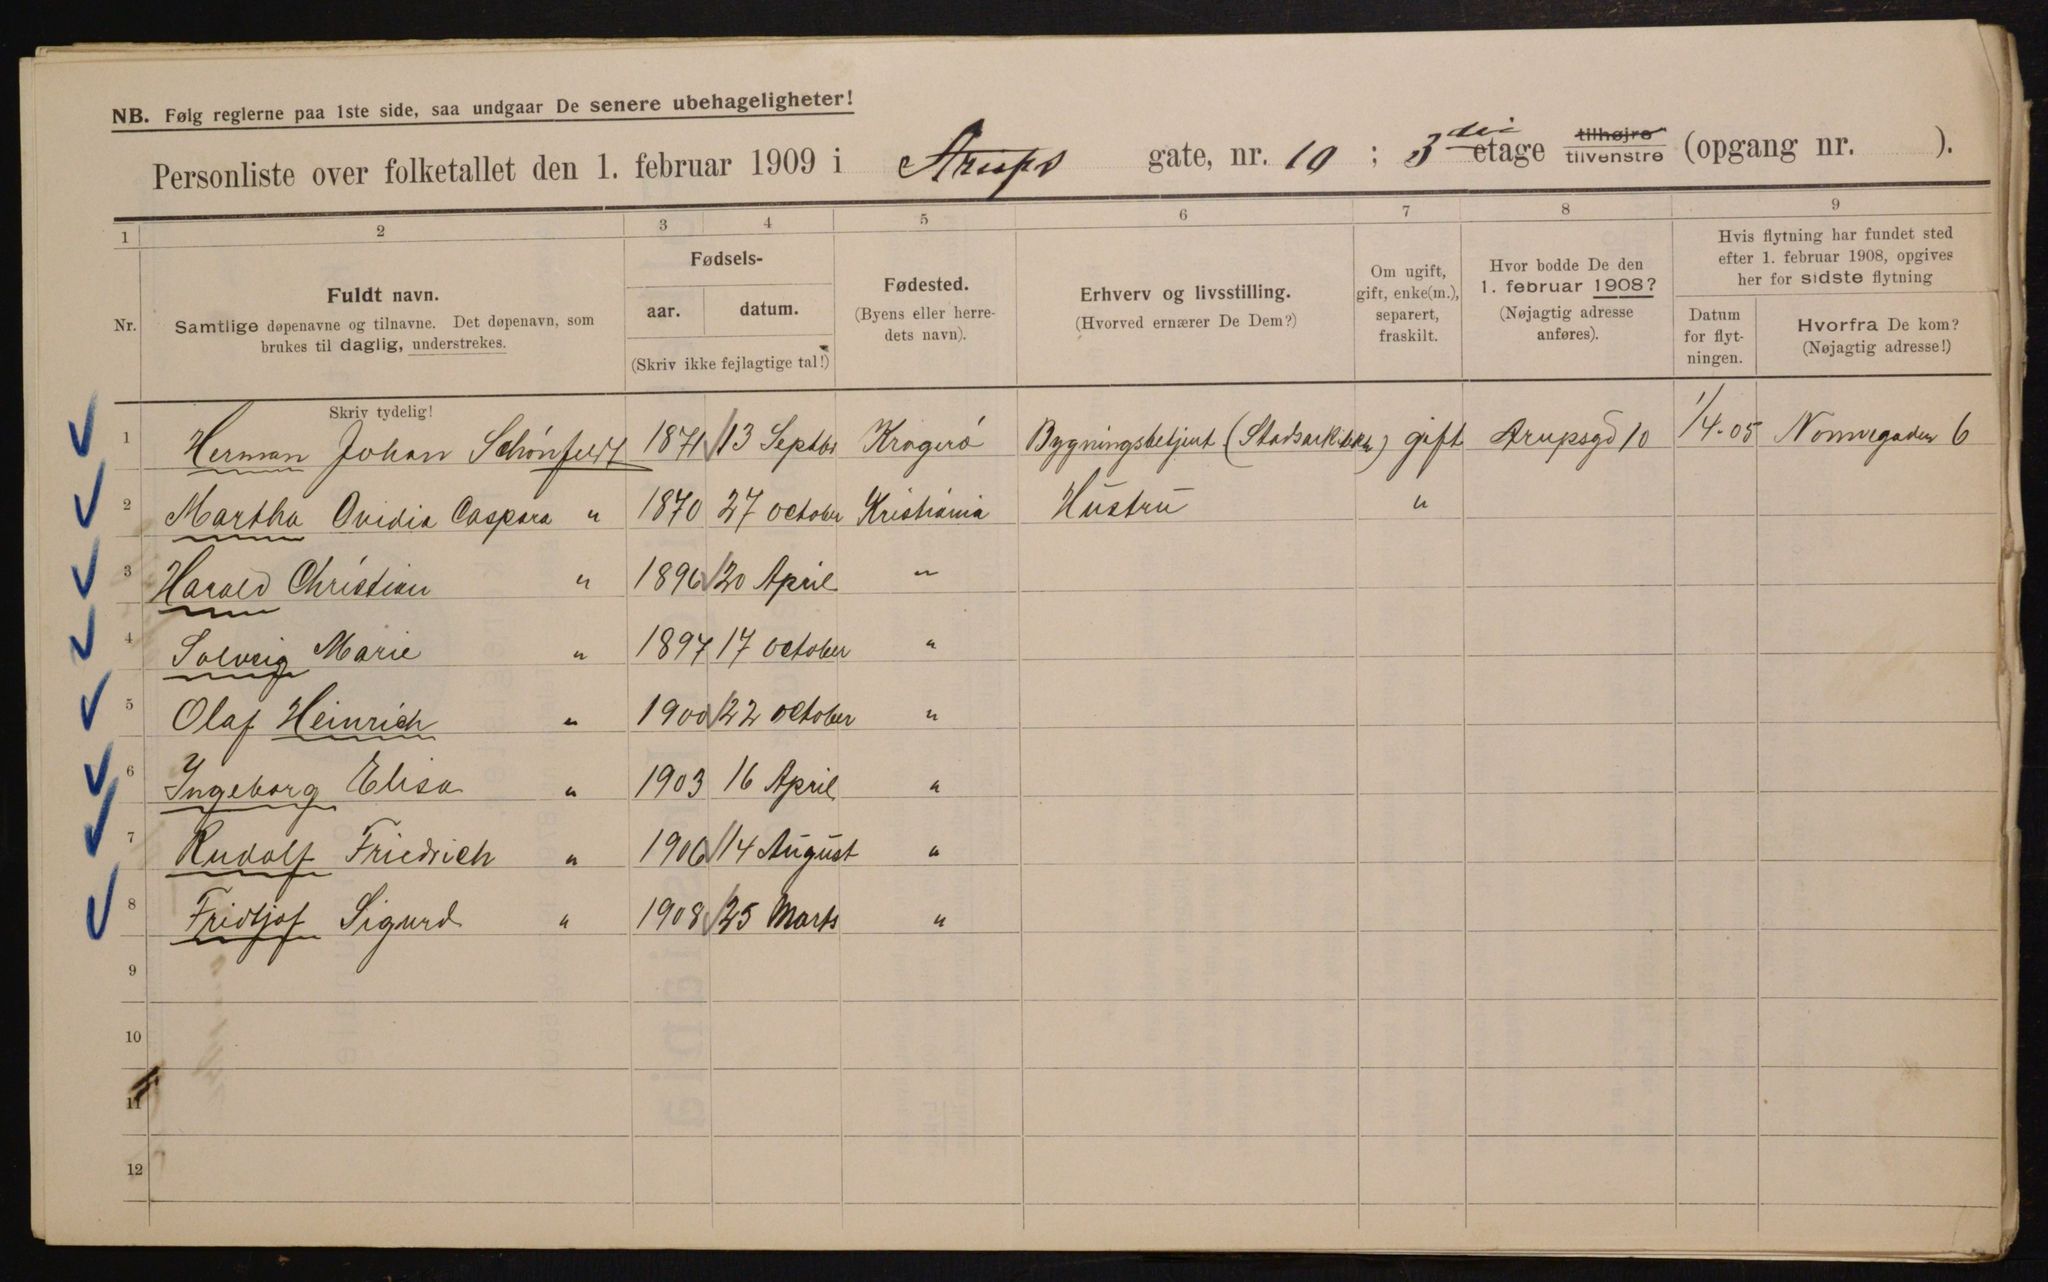 NB. Følg reglerne paa 1ste side, saa undgaar De senere ubehageligheter!
Personliste over folketallet den 1. februar 1909 i Arups gate, nr. 10; 3die etage tilhøjre tilvenstre (opgang nr. ).
1 2 3 4 5 6 7 8 9
Nr. Fuldt navn. Samtlige døpenavne og tilnavne. Det døpenavn, som brukes til daglig, understrekes.
Fødsels- aar. datum. (Skriv ikke fejlagtige tal!)
Fødested. (Byens eller herredets navn).
Erhverv og livsstilling. (Hvorved ernærer De Dem?)
Om ugift, gift, enke(m.), separert, fraskilt.
Hvor bodde De den 1. februar 1908? (Nøjagtig adresse anføres).
Hvis flytning har fundet sted efter 1. februar 1908, opgives her for sidste flytning
Datum for flytningen.
Hvorfra De kom? (Nøjagtig adresse!)
Skriv tydelig!
1 Herman Johan Schönfeldt 1871 13 Septbr Kragerö Bygningsbetjent ( ) gift Arupsgd 10 1/4-05 6
2 Martha Ovidia Caspara " 1870 27 october Kristiania Hustru "
3 Harald Christian " 1896 20 April "
4 Solveig Marie " 1897 17 october "
5 Olaf Heinrich " 1900 22 october "
6 Ingeborg Elisa " 1903 16 April "
7 Rudolf Friedrich " 1906 14 August "
8 Fridtjof Sigurd " 1908 25 Marts "
9
10
11
12